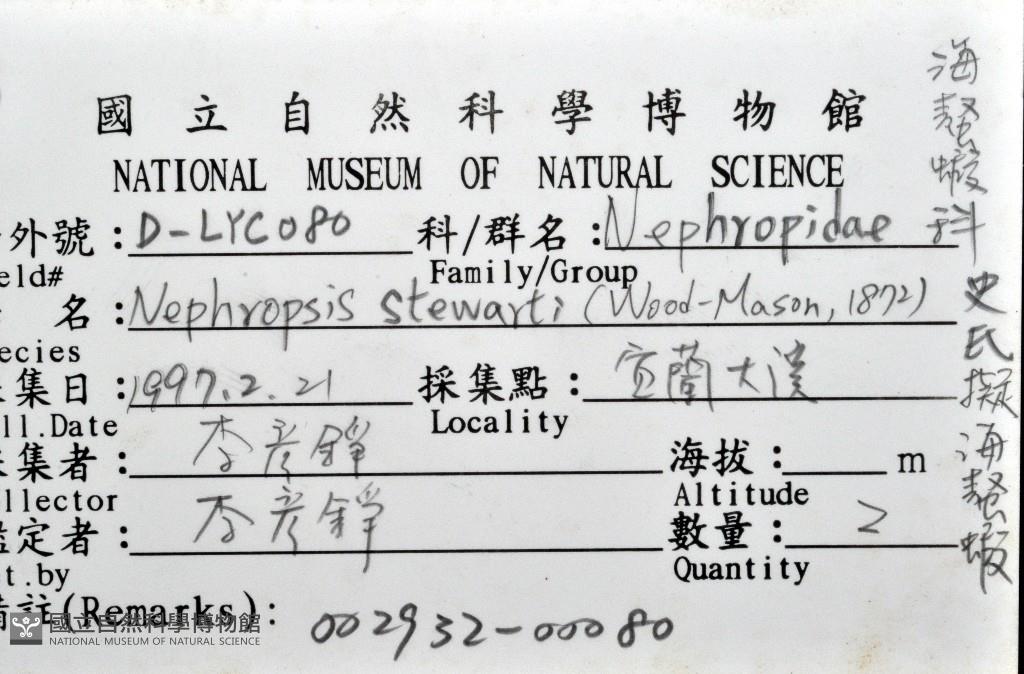 國立自然科學博物館
NATIONAL MUSEUM OF NATURAL SCIENCE
外號：D-LYC080 科/群名：Nephropidae
eld# Family/Group
名：Nephropsis stewarti (Wood-Mason, 1872)
ecies
採集日：1997.2.21 採集點：宜蘭大溪
ll.Date Locality
採集者：李彥錚 海拔： m
llector Altitude
鑑定者：李彥錚 數量：2
t.by Quantity
備註(Remarks)：
002932-00080
海螯蝦科
史氏擬海螯蝦
國立自然科學博物館
NATIONAL MUSEUM OF NATURAL SCIENCE